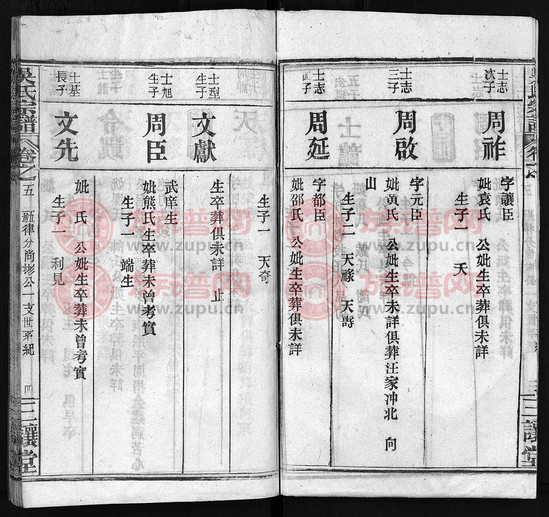 士志
次子
周祚
字讓臣
妣袁氏 公妣生卒葬俱未詳
生子一 天
士志
三子
周啟
字元臣
妣黃氏 公妣生卒未詳俱葬汪家冲北 向
山
生子二 天祿 天壽
周延
字都臣
妣邵氏 公妣生卒葬俱未詳
士型
生子
文獻
生卒葬俱未詳 止
生子一 天奇
士旭
生子
周臣
武庠生
妣熊氏 生卒葬未曾考實
生子一 端生
士基
長子
文先
妣 氏 公妣生卒葬未曾考實
生子一 利見
吳氏宗譜
卷之
五 班律分尚彬公一支世系紀
四
三讓堂
族譜网
www.zupu.cn